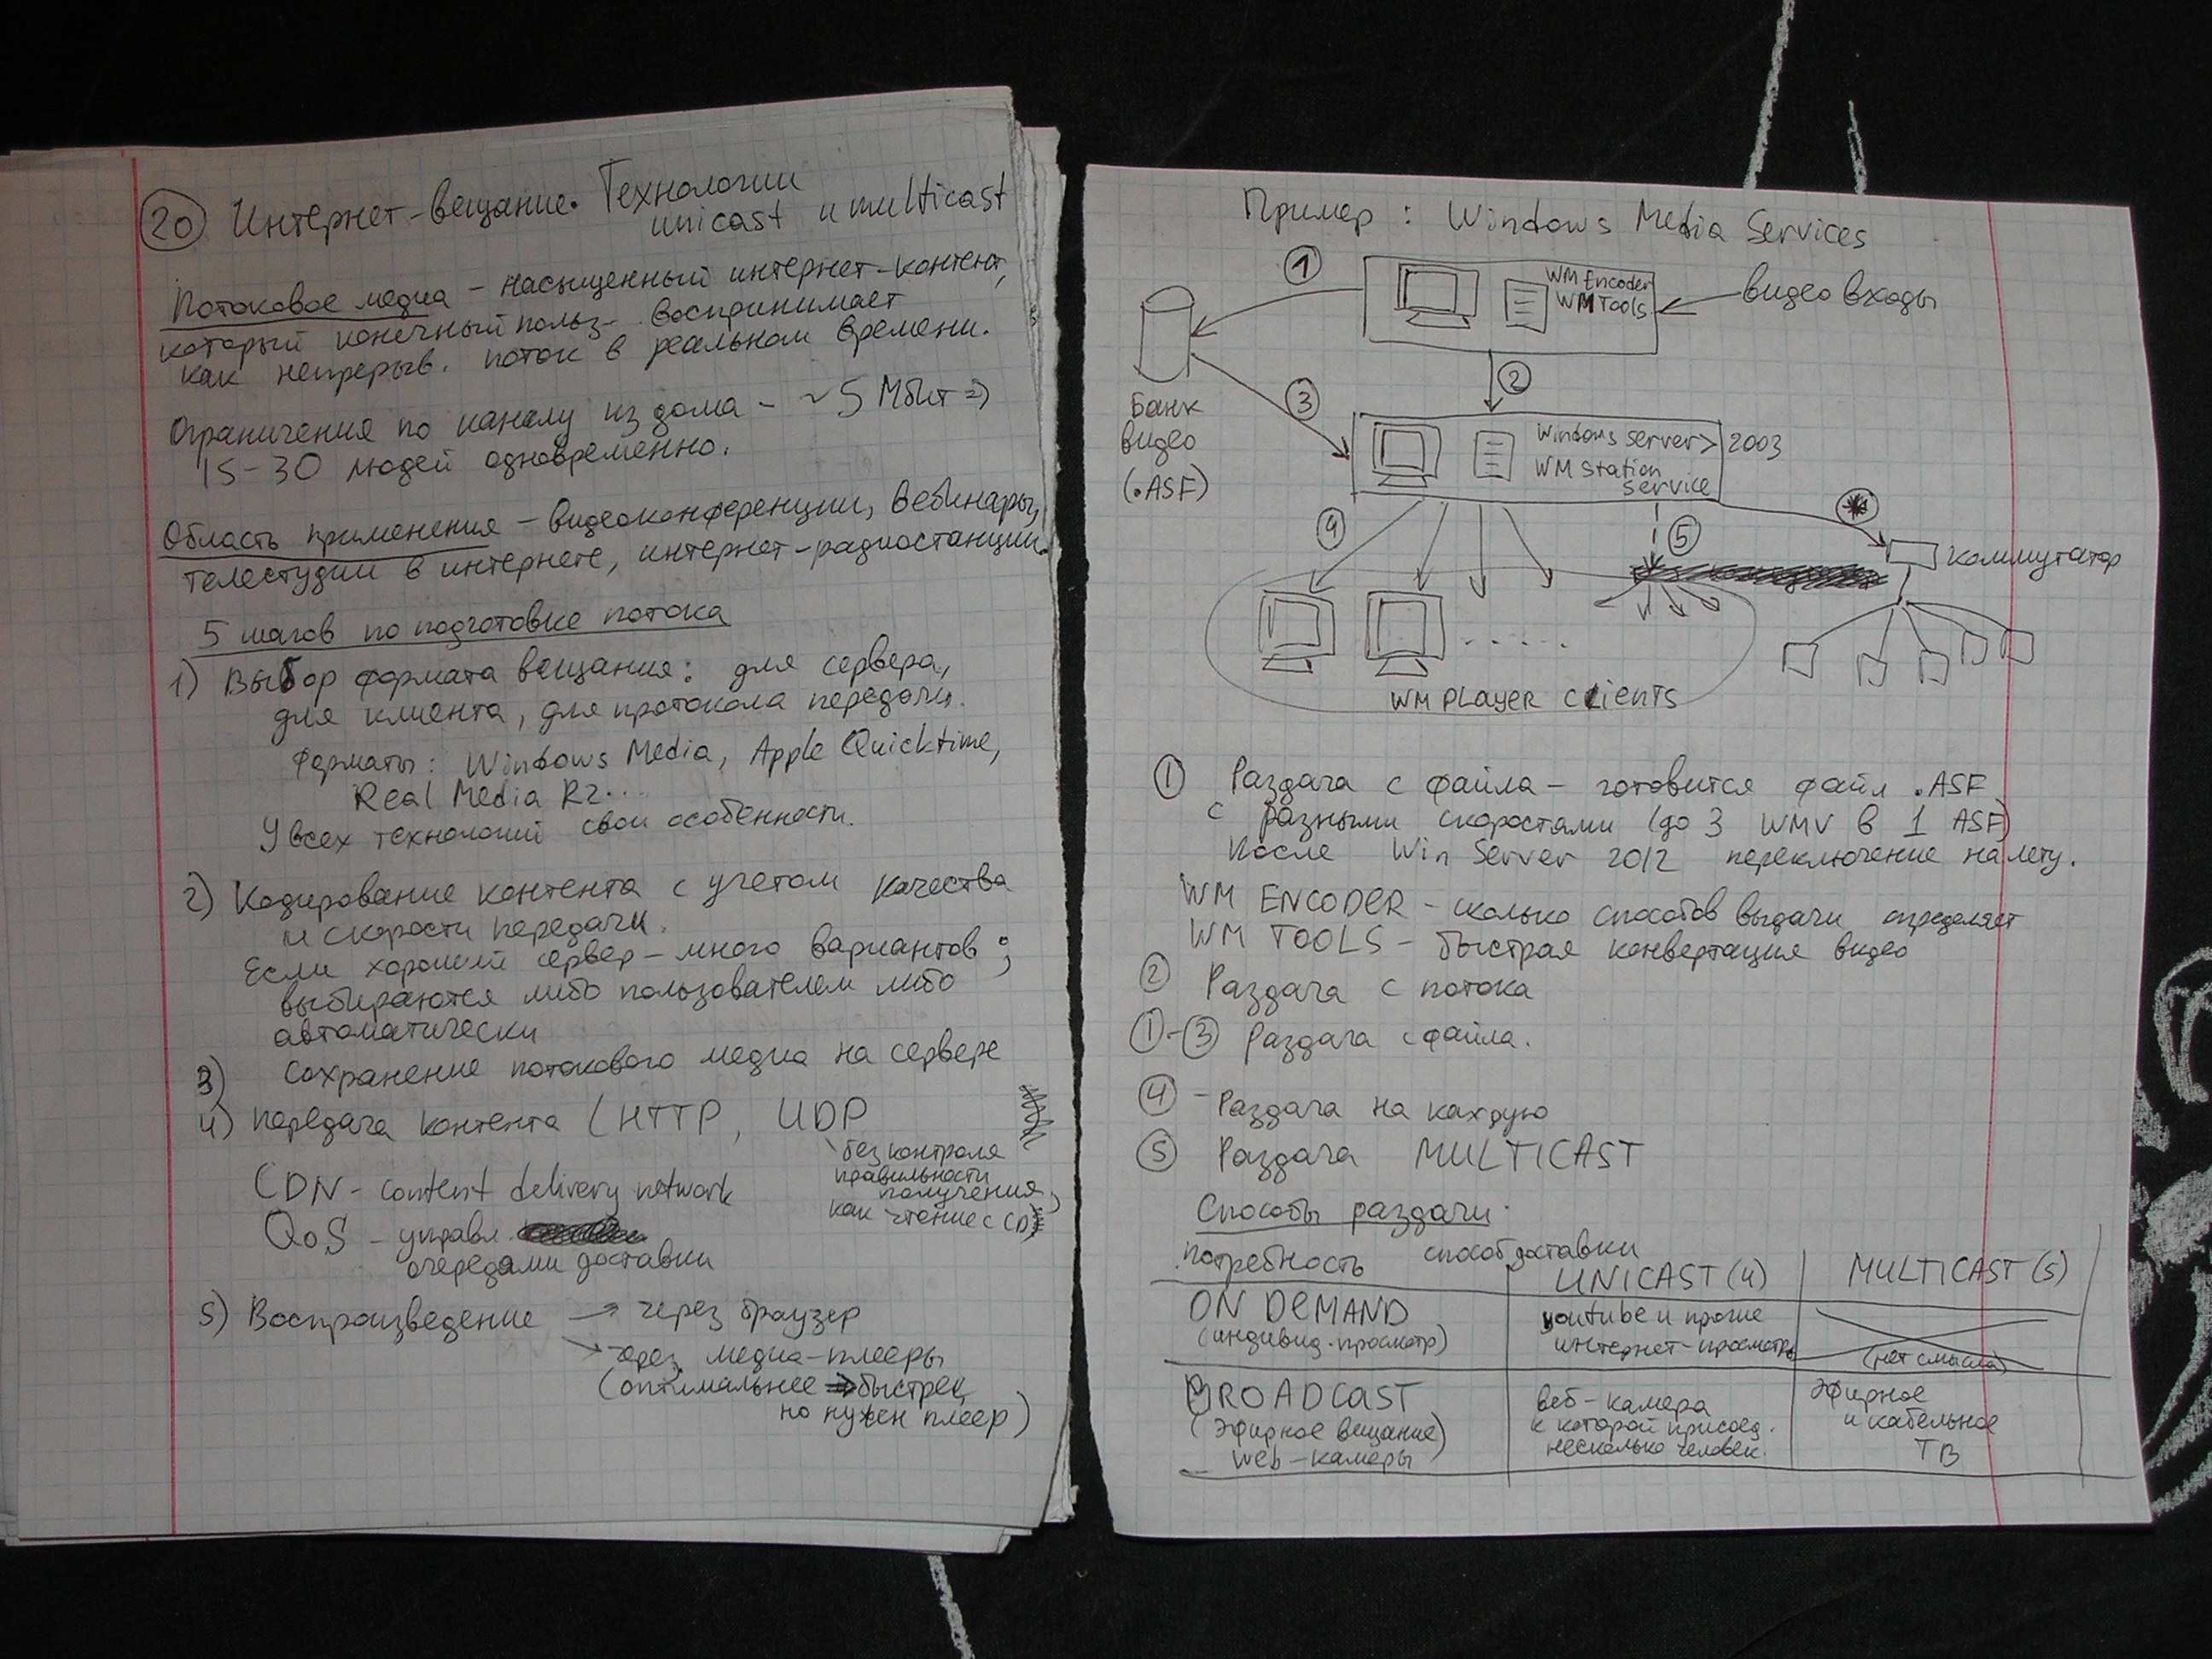 20 Интернет-вещание. Технологии
unicast и multicast
Потоковое медиа - насыщенный интернет-контент,
который конечный польз- воспринимает
как непрерыв. поток в реальном времени.
Ограничения по каналу из дома - ~5 Мбит =>
15-30 людей одновременно.
Область применения - видеоконференции, вебинары,
телестудии в интернете, интернет-радиостанции.
5 шагов по подготовке потока
1) Выбор формата вещания: для сервера,
для клиента, для протокола передачи.
Форматы: Windows Media, Apple Quicktime,
Real Media R2...
У всех технологий свои особенности.
2) Кодирование контента с учетом качества
и скорости передачи.
Если хороший сервер - много вариантов;
выбираются либо пользователем либо
автоматически
3) Сохранение потокового медиа на сервере
4) Передача контента (HTTP, UDP
без контроля
правильности
получения,
как чтение с CD)
CDN - content delivery network
QoS - управл.
очередами доставки
5) Воспроизведение → через браузер
→ через медиа-плееры
(оптимальнее => быстрее,
но нужен плеер)
Пример: Windows Media Services
1
WM Encoder
WM Tools
видео входы
2
3
Банк
видео
(.ASF)
Windows server > 2003
WM Station
service
4
5
коммутатор
WM PLAYER CLIENTS
1 Раздача с файла - готовится файл .ASF
с разными скоростями (до 3 WMV в 1 ASF)
После Win Server 2012 переключение на лету.
WM ENCODER - сколько способов выдачи определяет
WM TOOLS - быстрая конвертация видео
2 Раздача с потока
1-3 Раздача с файла.
4 - Раздача на каждую
5 Раздача MULTICAST
Способы раздачи.
потребность способ доставки
UNICAST (4) MULTICAST (5)
ON DEMAND
(индивид. просмотр)
youtube и прочие
интернет-просмотры
(нет смысла)
BROADCAST
(Эфирное вещание)
web-камеры
веб-камера
к которой присоед.
несколько человек.
Эфирное
и кабельное
ТВ